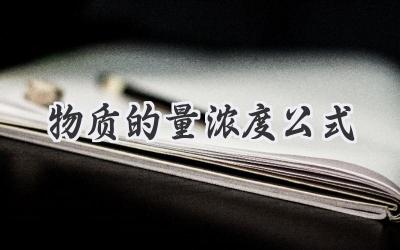 物质的量浓度公式